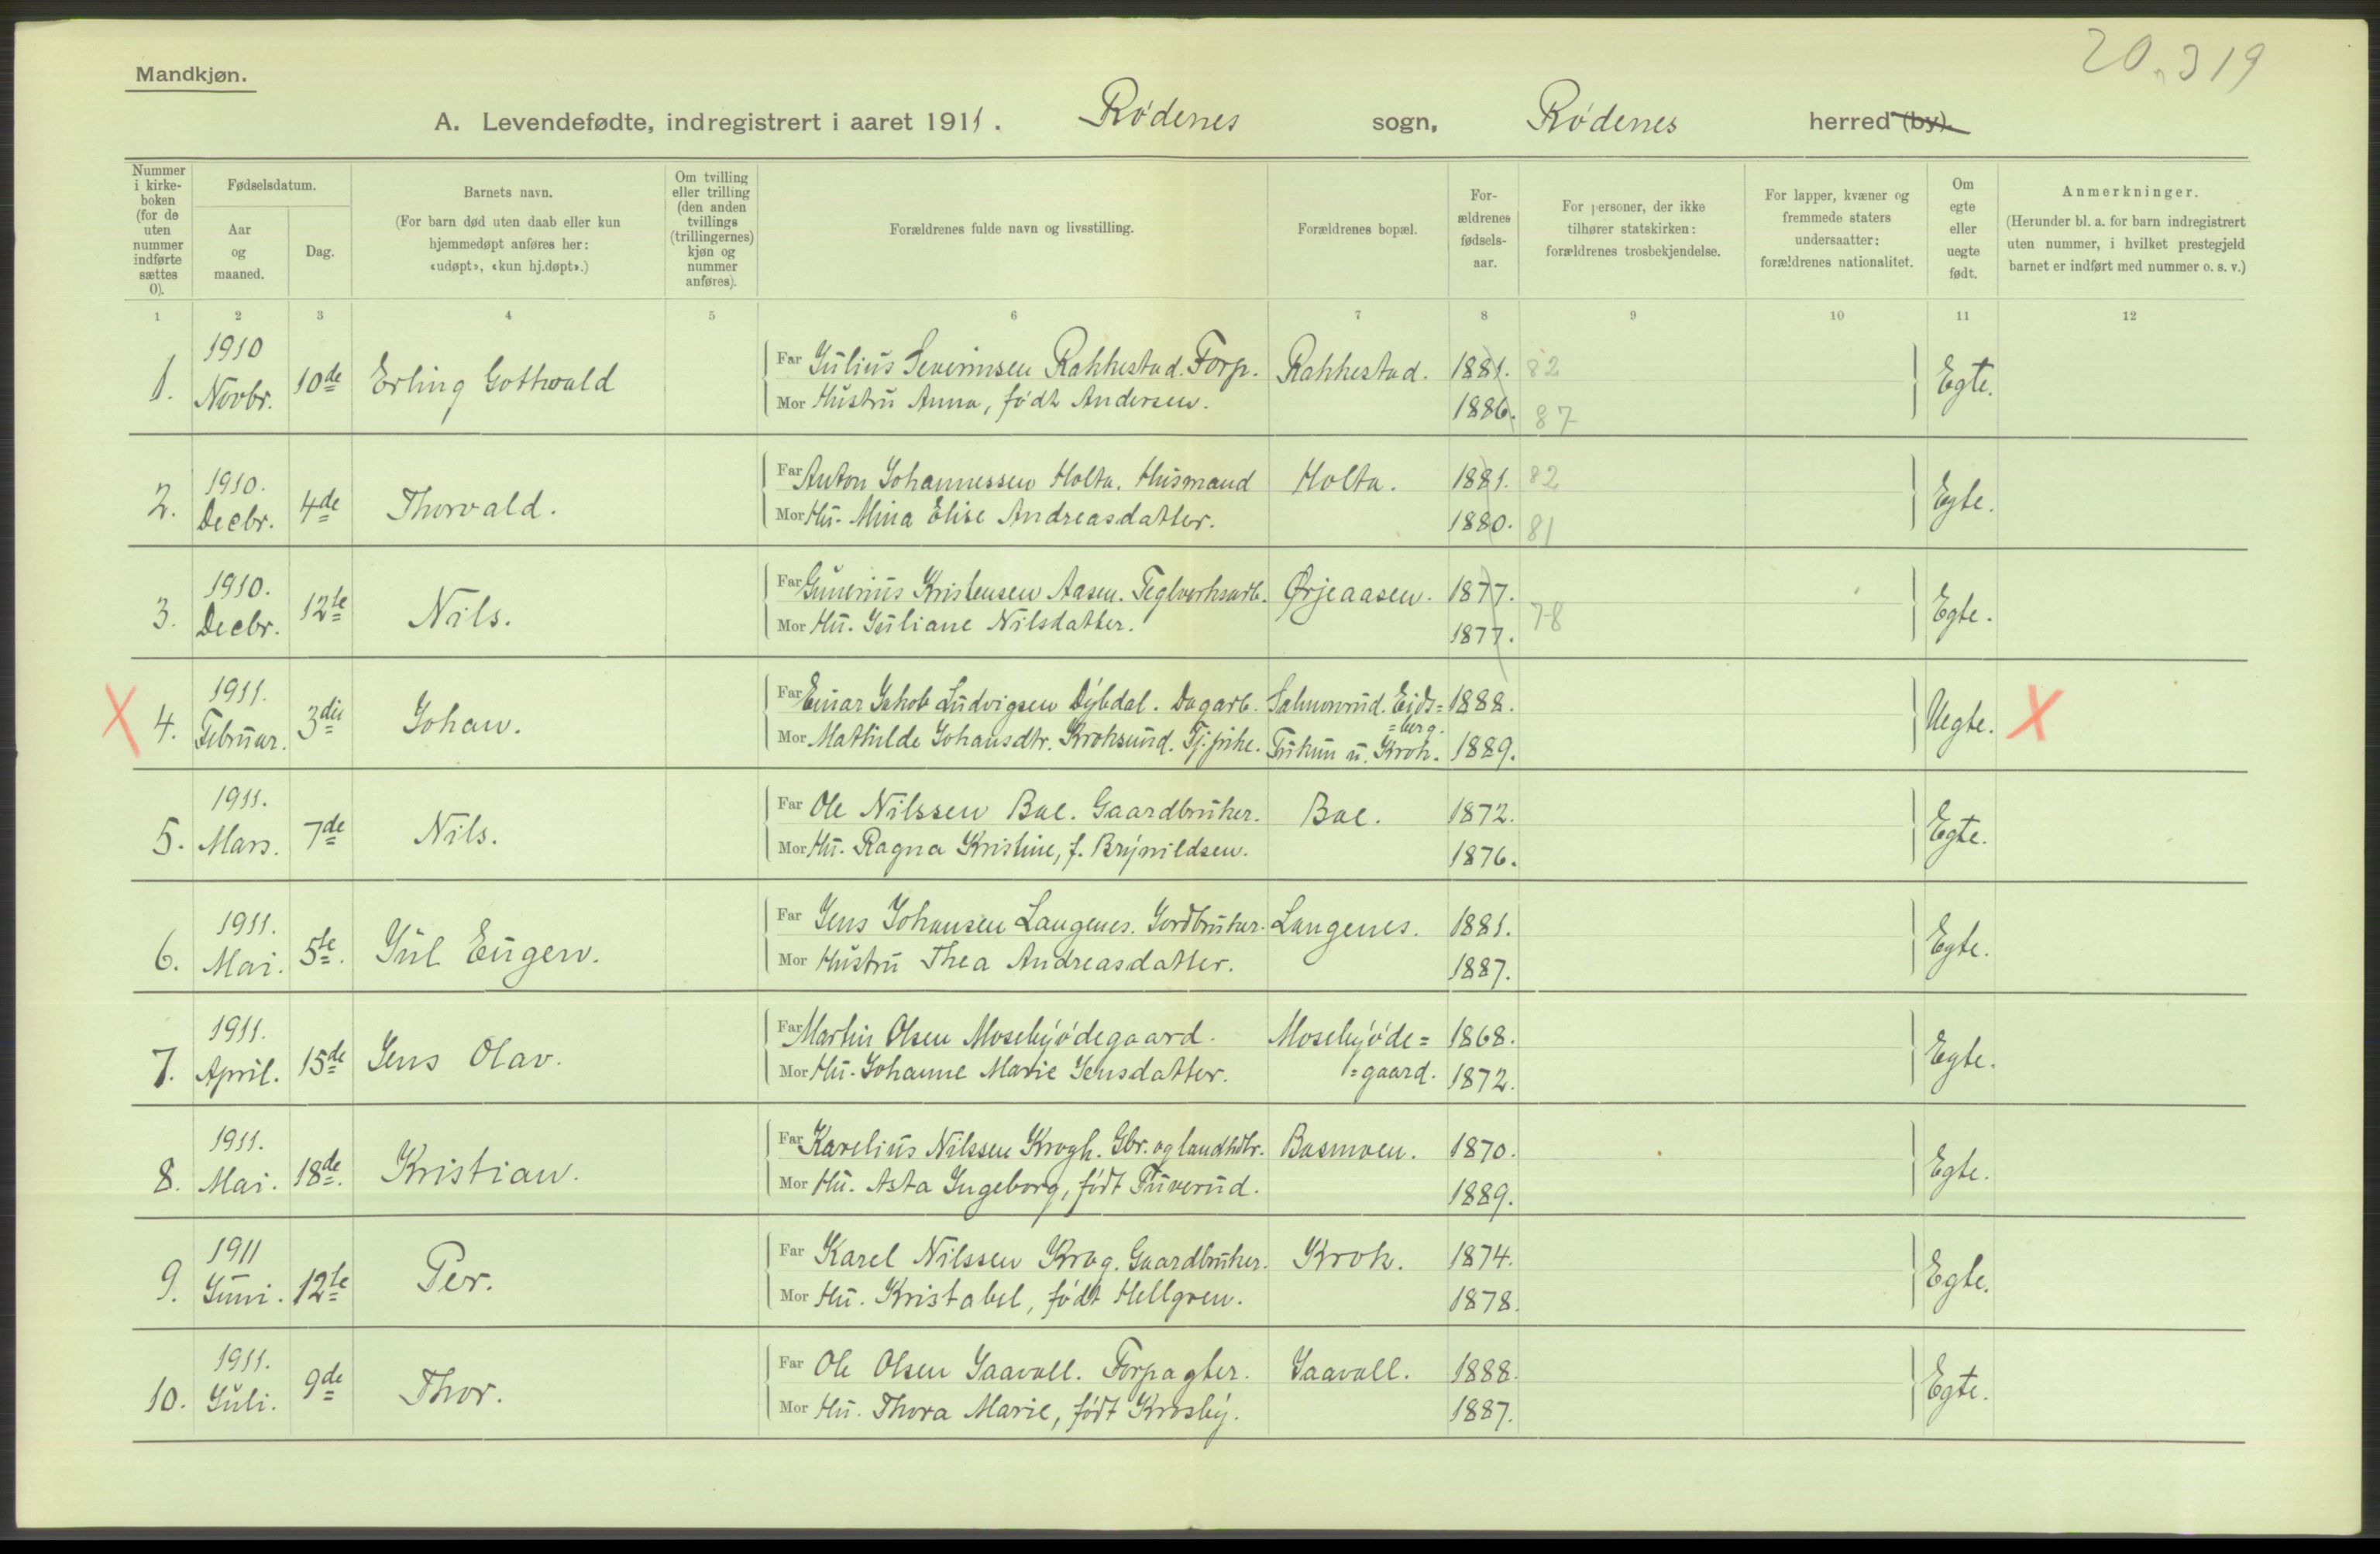 20.319
Mandkjøn.
A. Levendefødte, indregistrert i aaret 1911. Rødenes sogn, Rødenes herred (by).
Nummer i kirke-boken (for de uten nummer indførte sættes 0).
Fødselsdatum.
Aar og maaned.
Dag.
Barnets navn.
(For barn død uten daab eller kun hjemmedøpt anføres her: «udøpt», «kun hj.døpt».)
Om tvilling eller trilling (den anden tvillings (trillingernes) kjøn og nummer anføres).
Forældrenes fulde navn og livsstilling.
Forældrenes bopæl.
For-ældrenes fødsels-aar.
For personer, der ikke tilhører statskirken: forældrenes trosbekjendelse.
For lapper, kvæner og fremmede staters undersaatter: forældrenes nationalitet.
Om egte eller uegte født.
Anmerkninger.
(Herunder bl. a. for barn indregistrert uten nummer, i hvilket prestegjeld barnet er indført med nummer o. s. v.)
1 2 3 4 5 6 7 8 9 10 11 12
1. 1910 Novbr. 10de Erling Gotthvald Far Julius Severinsen Rakkestad. Forp. Rakkestad. 1881. 82 Egte.
Mor Hustru Anna, født Andersen. 1886. 87
2. 1910. Decbr. 4de Thorvald. Far Anton Johannessen Holta. Husmand Holta. 1881. 82 Egte.
Mor Hu. Mina Elise Andreasdatter. 1880. 81
3. 1910. Decbr. 12te Nils. Far Gunerius Kristensen Aasen. Teglverksarb. Ørjeaasen. 1877. Egte.
Mor Hu. Juliane Nilsdatter. 1877. 78
X 4. 1911. Februar. 3die Johan. Far Einar Jakob Ludvigsen Dybdal. Dagarb. Salmonrud. Eids= =berg. 1888. Uegte. X
Mor Mathilde Johansdtr. Kroksund. Tj.pike. Krok. 1889.
5. 1911. Mars. 7de Nils. Far Ole Nilssen Bøe. Gaardbruker. Bøe. 1872. Egte.
Mor Hu. Ragna Kristine, f. Brynildsen. 1876.
6. 1911. Mai. 5te. Jul Eugen. Far Jens Johansen Langenes. Jordbruker. Langenes. 1881. Egte.
Mor Hustru Thea Andreasdatter. 1887.
7. 1911. April. 15de Jens Olav. Far Martin Olsen Mosebyødegaard. Mosebyøde= =gaard. 1868. Egte.
Mor Hu. Johanne Marie Jensdatter. 1872.
8. 1911. Mai. 18de. Kristian. Far Karelius Nilssen Krogh. Gbr. og landhdlr. Basmoen. 1870. Egte.
Mor Hu. Asta Ingeborg, født Tuverud. 1889.
9. 1911 Juni. 12te Per. Far Karel Nilssen Krog. Gaardbruker. Krok. 1874. Egte.
Mor Hu. Kristabel, født Hellgren. 1878.
10. 1911. Juli. 9de Thor. Far Ole Olsen Jaavall. Forpagter. Jaavall. 1888. Egte.
Mor Hu. Thora Marie, født Krosby. 1887.